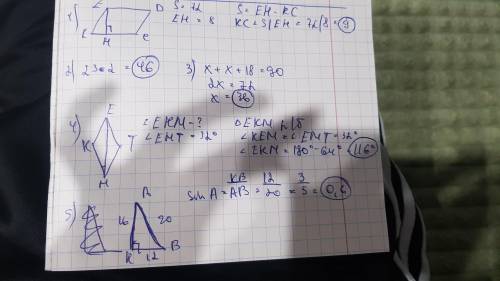 1) E D S = 72 S = EH · KC
EH = 8 KC = S/EH = 72/8 = 9
H C
2) 23·2 = 46 3) x + x + 18 = 90
2x = 72
x = 36
4) E ∠EKM - ? △EKM р/б
K T ∠EMT = 32° ∠KEM = ∠EMT = 32°
M ∠EKM = 180° - 64° = 116°
5) A sin A = KB/AB = 12/20 = 3/5 = 0,6
16 20
K 12 B